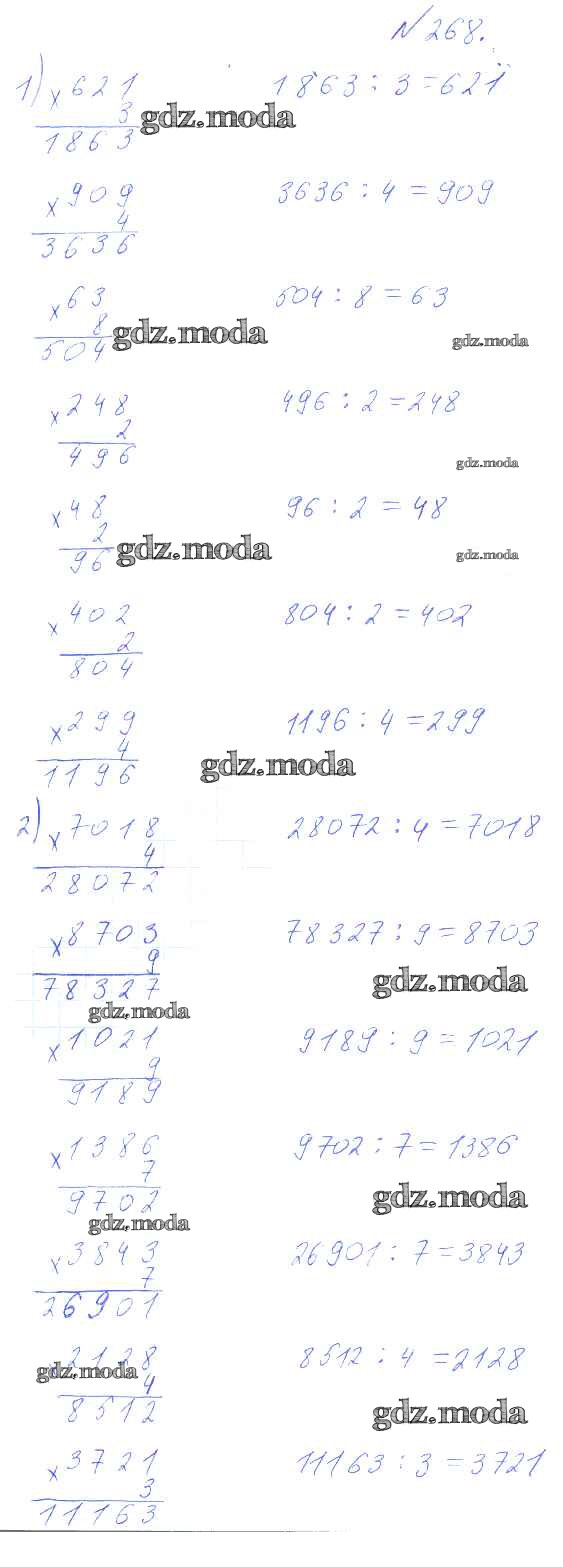 № 268.
1) × 621 1863 : 3 = 621
3 gdz.moda
1863
× 909 3636 : 4 = 909
4
3636
× 63 504 : 8 = 63
8 gdz.moda gdz.moda
504
× 248 496 : 2 = 248
2
496 gdz.moda
× 48 96 : 2 = 48
2 gdz.moda gdz.moda
96
× 402 804 : 2 = 402
2
804
× 299 1196 : 4 = 299
4 gdz.moda
1196
2) × 7018 28072 : 4 = 7018
4
28072
× 8703 78327 : 9 = 8703
9 gdz.moda
78327
gdz.moda
× 1021 9189 : 9 = 1021
9
9189
× 1386 9702 : 7 = 1386
7 gdz.moda
9702
gdz.moda
× 3843 26901 : 7 = 3843
7
26901
2128 8512 : 4 = 2128
gdz.moda
4 gdz.moda
8512
× 3721 11163 : 3 = 3721
3
11163